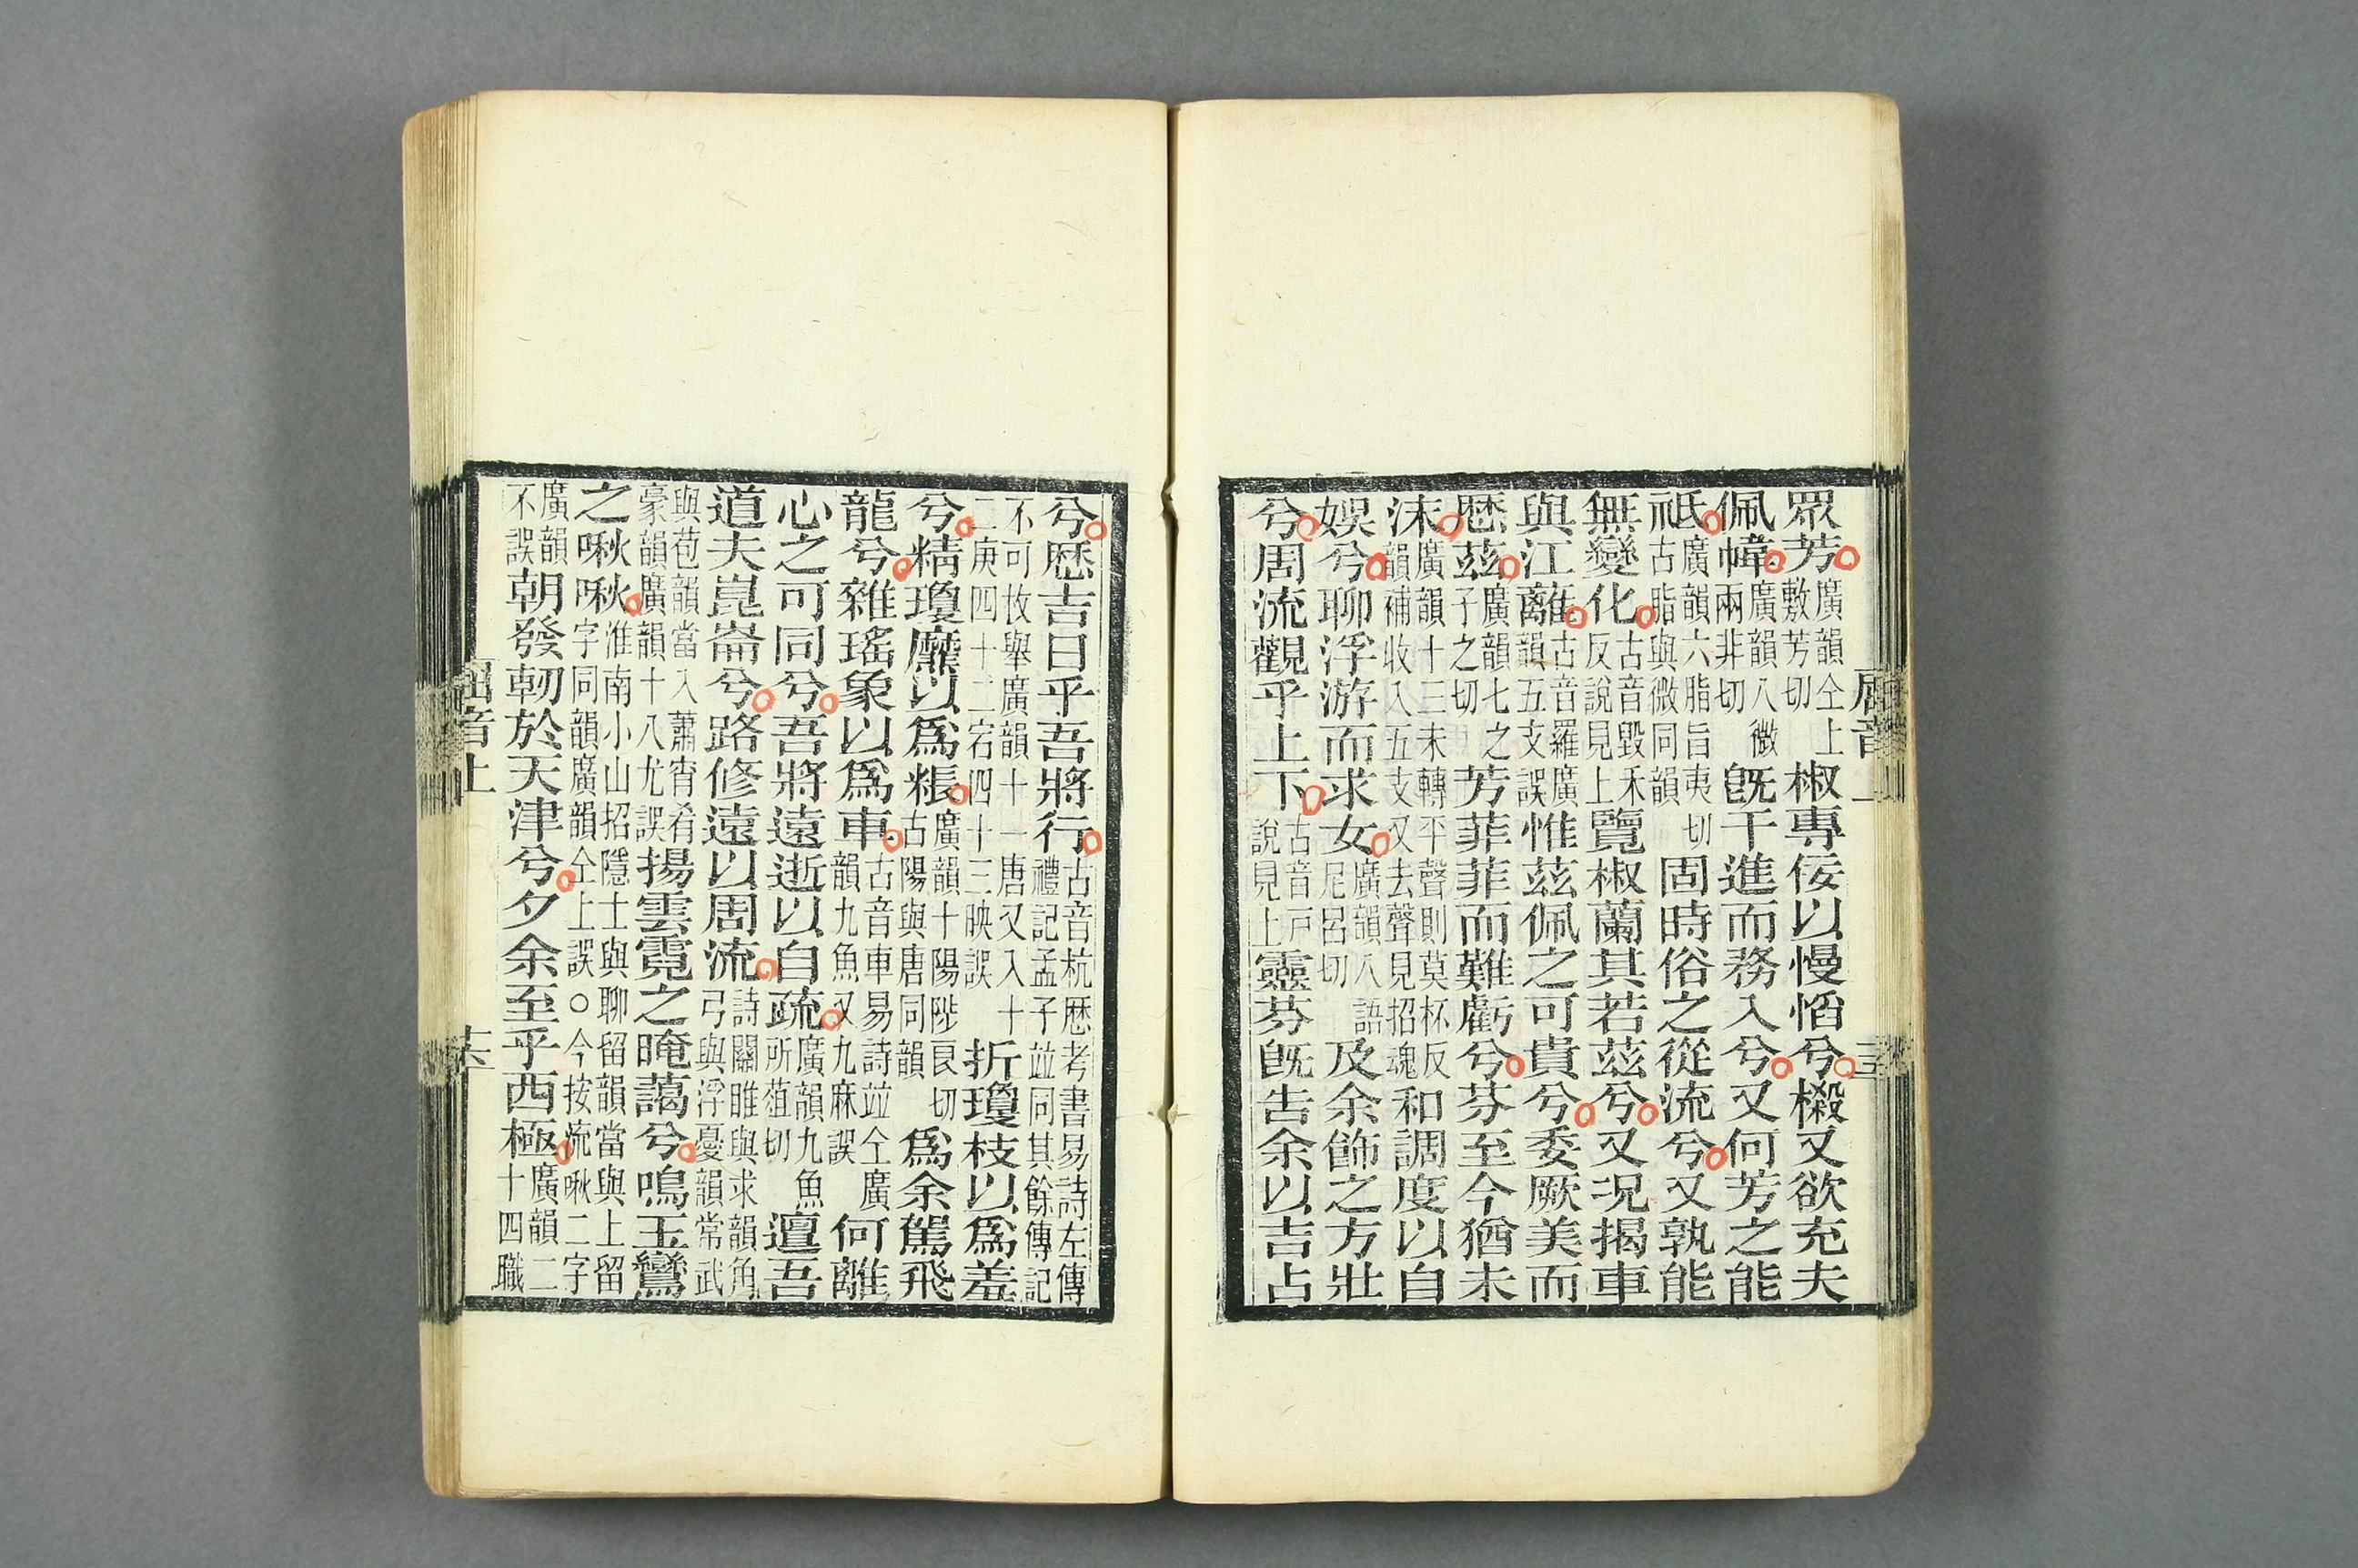 眾芳廣韻仝上敷芳切椒專佞以慢慆兮樧又欲充夫
佩幃廣韻八微兩非切旣干進而務入兮又何芳之能
祗廣韻六脂旨夷切古脂與微同韻固時俗之從流兮又孰能
無變化古音毀禾反說見上覽椒蘭其若茲兮又況揭車
與江蘺古音羅廣韻五支誤惟茲佩之可貴兮委厥美而
歷茲廣韻七之子之切芳菲菲而難虧兮芬至今猶未
沬廣韻十三未轉平聲則莫杯反韻補收入五支又去聲見招魂和調度以自
娛兮聊浮游而求女廣韻八語尼呂切及余飾之方壯
兮周流觀乎上下古音戸說見上靈芬旣告余以吉占
兮歷吉日乎吾將行古音杭歷考書易詩左傳禮記孟子竝同其餘傳記
不可枚舉廣韻十一唐又入十二庚四十二宕四十三映誤折瓊枝以爲羞
兮精瓊爢以爲粻廣韻十陽陟良切古陽與唐同韻爲余駕飛
龍兮雜瑤象以爲車古音車易詩竝仝廣韻九魚又九麻誤何離
心之可同兮吾將遠逝以自疏廣韻九魚所葅切邅吾
道夫崑崙兮路修遠以周流詩關雎與求韻角弓與浮憂韻常武
與苞韻當入蕭宵肴豪韻廣韻十八尤誤揚雲霓之晻藹兮鳴玉鸞
之啾啾淮南小山招隱士與聊留韻當與上留字同韻廣韻仝上誤○今按流啾二字
廣韻不誤朝發軔於天津兮夕余至乎西極廣韻二十四職
屈音上
十六